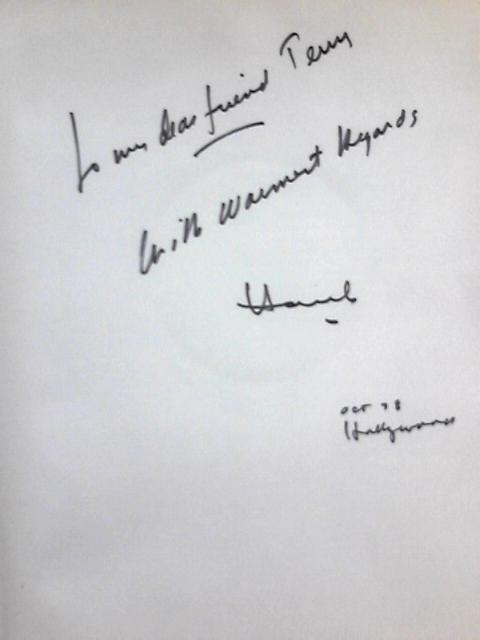 To my dear friend Terry
With Warmest Regards
Oct 78
Hollywood